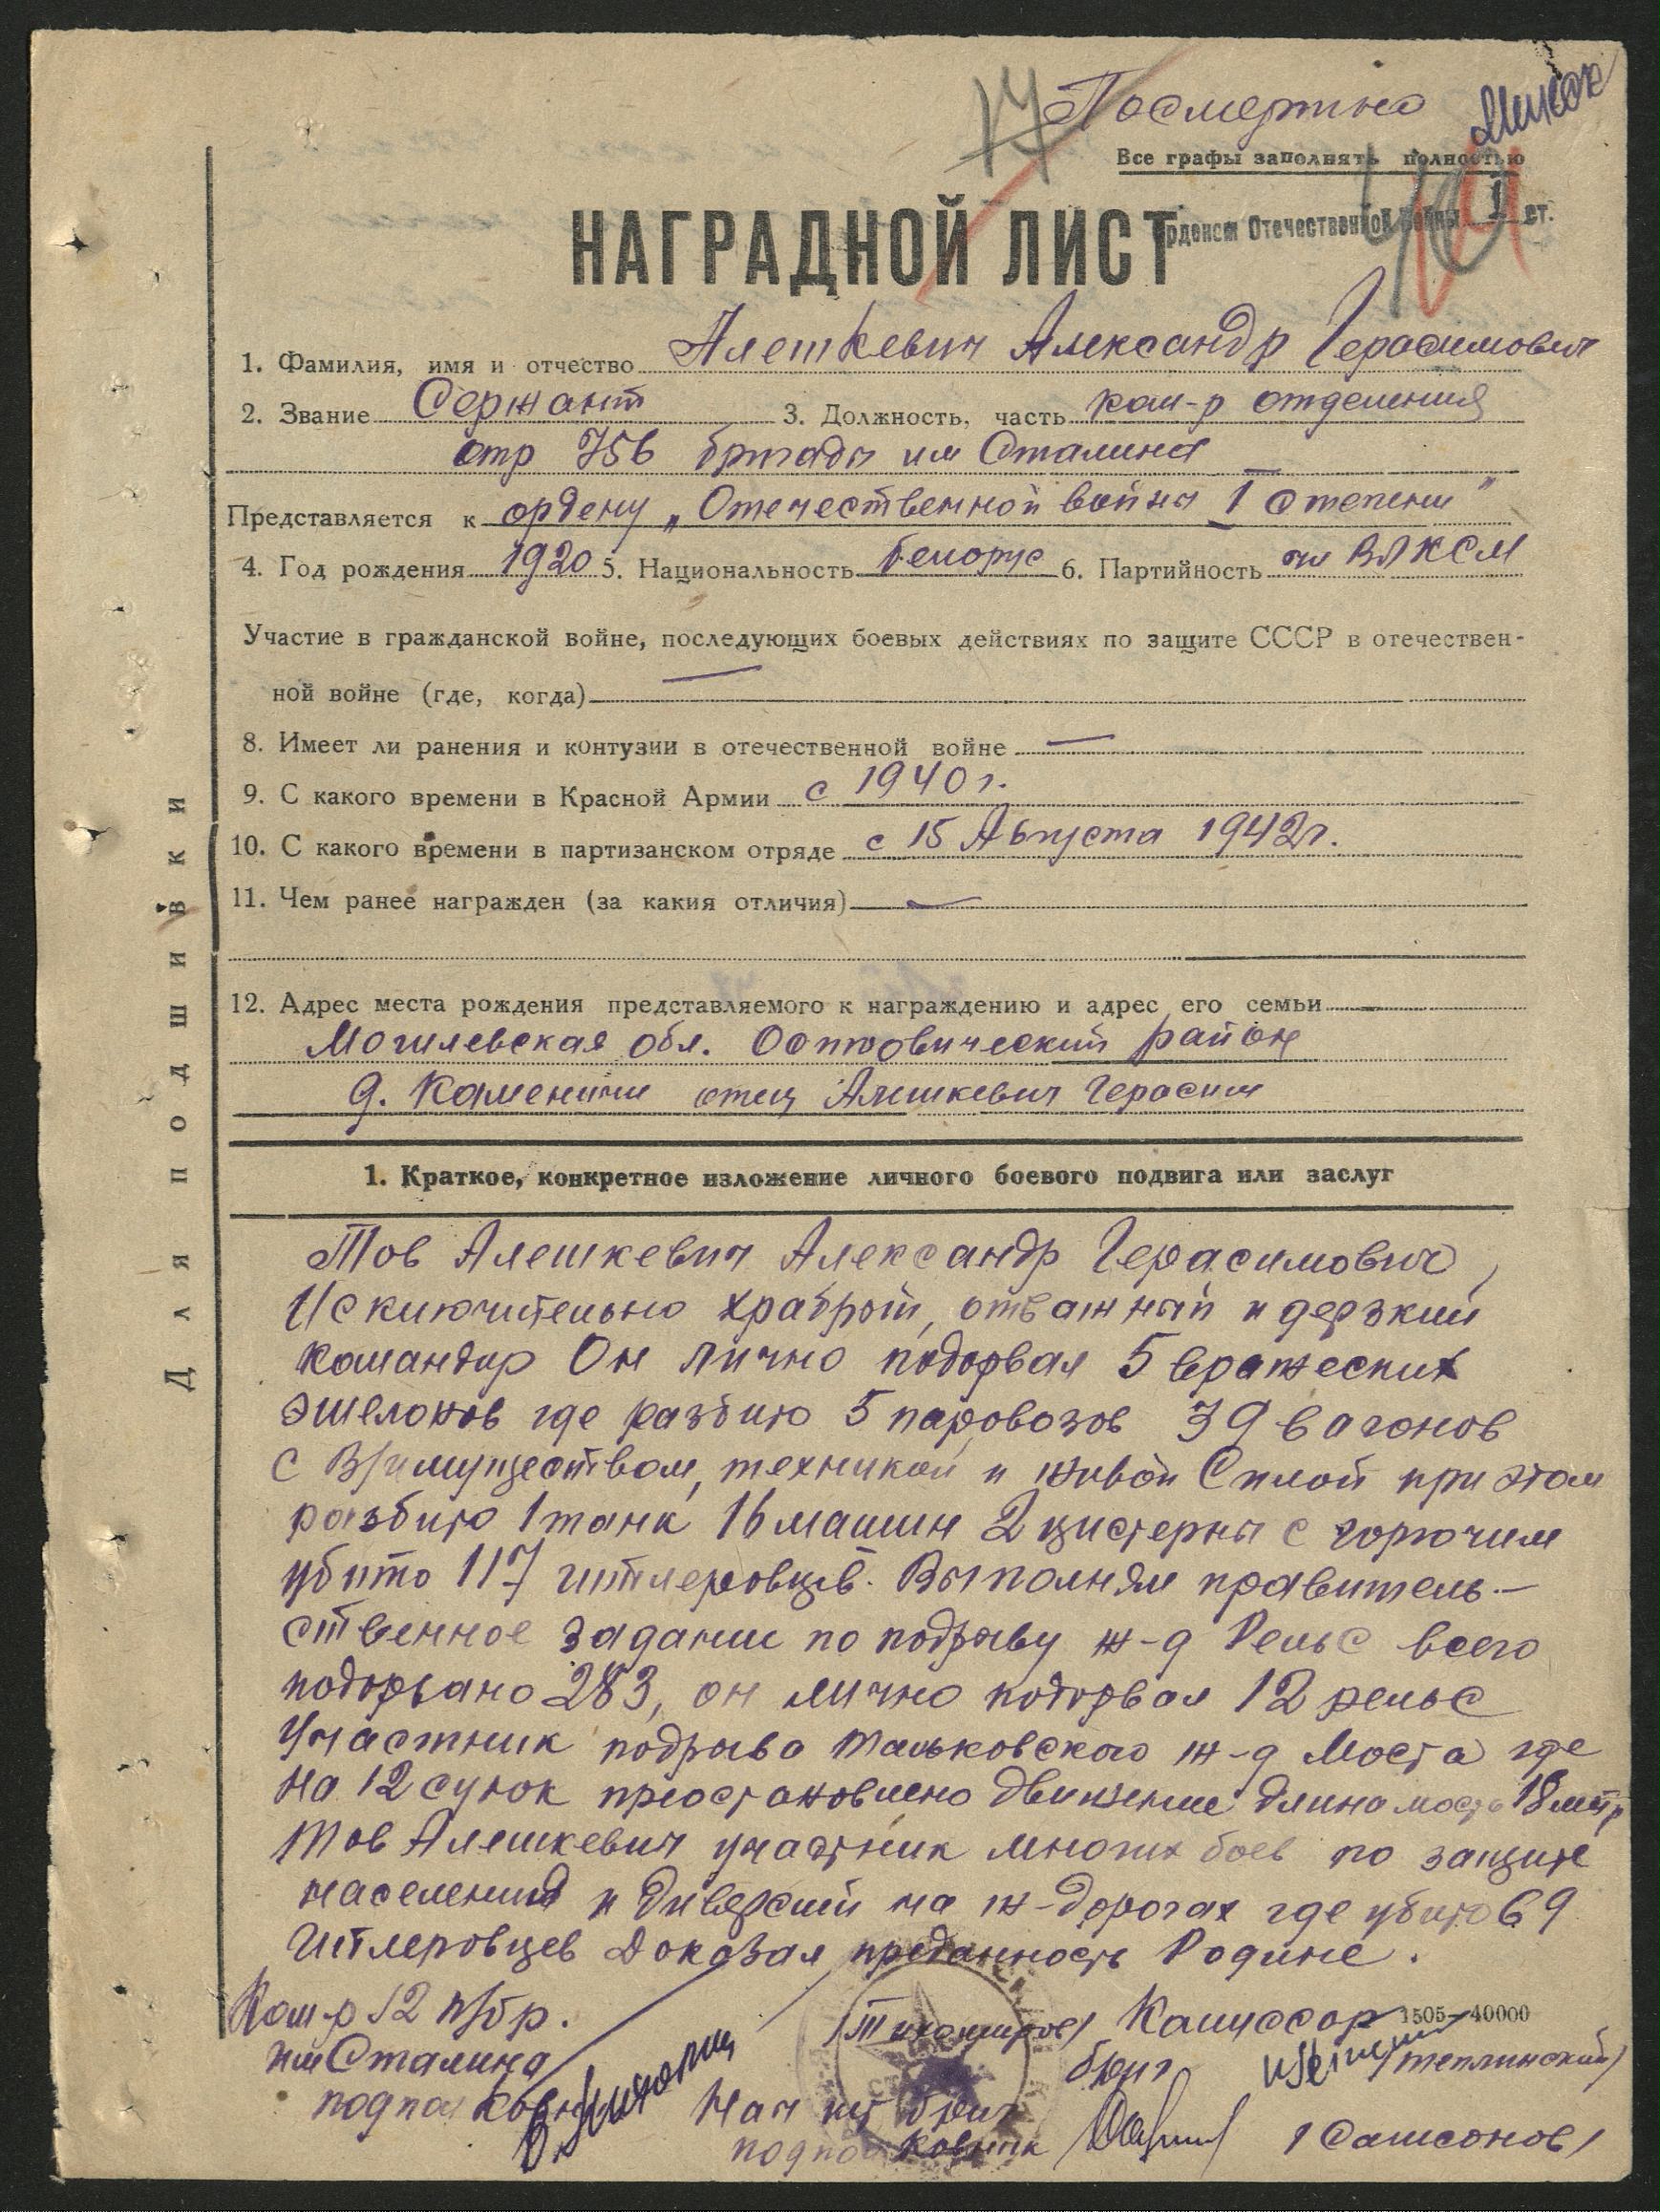 17
Посмертно
Минск
Все графы заполнять полностью
орденом Отечественной войны I ст.
НАГРАДНОЙ ЛИСТ
1. Фамилия, имя и отчество Алешкевич Александр Герасимович
2. Звание Сержант 3. Должность, часть ком-р отделения
отр 756 бригады им Сталина
Представляется к ордену „Отечественной войны I степени"
4. Год рождения 1920 5. Национальность белорус 6. Партийность чл ВЛКСМ
Участие в гражданской войне, последующих боевых действиях по защите СССР в отечествен-
ной войне (где, когда) —
8. Имеет ли ранения и контузии в отечественной войне —
9. С какого времени в Красной Армии с 1940 г.
10. С какого времени в партизанском отряде с 15 Августа 1942 г.
11. Чем ранее награжден (за какия отличия) —
12. Адрес места рождения представляемого к награждению и адрес его семьи
Могилевская обл. район
д. отец Алешкевич Герасим
Для подшивки
1. Краткое, конкретное изложение личного боевого подвига или заслуг
Тов Алешкевич Александр Герасимович,
Исключительно храбрый, отважный и дерзкий
командир Он лично подорвал 5 вражеских
эшелонов где разбито 5 паровозов 39 вагонов
с в/имуществом, техникой и живой Силой при этом
разбито 1 танк 16 машин 2 цистерны с горючим
убито 117 гитлеровцев. Выполняя правитель-
ственное задание по подрыву ж-д Рельс всего
подорвано 283, он лично подорвал 12 рельс
Участник подрыва Тальковского ж-д Моста где
на 12 суток приостановлено движение длина мост 18 метр
Тов Алешкевич участник многих боев по защите
населения и диверсий на ж-дорогах где убито 69
Гитлеровцев Доказал преданность Родине.
Ком-р 12 п/бр. /Тихомиров/ Комиссар 1505—40000
им Сталина бриг /Теплинский/
подполковник Нач шт бриг
подполковник /Самсонов/